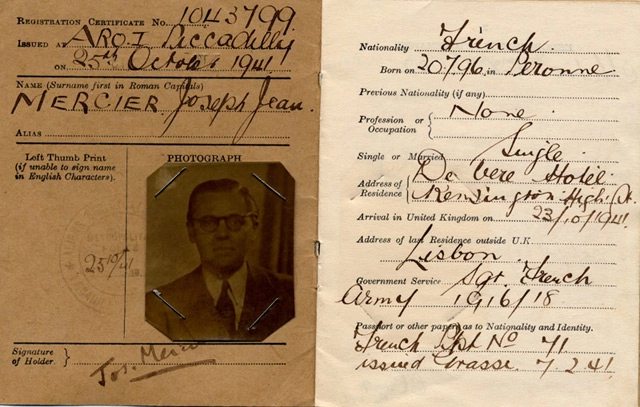 REGISTRATION CERTIFICATE No. 1043799
ISSUED AT ARO I Piccadilly
ON 25th October 1941
NAME (Surname first in Roman Capitals)
MERCIER Joseph Jean.
ALIAS
Left Thumb Print
(if unable to sign name
in English Characters).
PHOTOGRAPH
25/10/41
Signature
of Holder.
Jos. Mercier
Nationality French
Born on 20.7.96 in Peronne
Previous Nationality (if any)
Profession or
Occupation
None
Single or Married Single
Address of
Residence
De Vere Hotel
Kensington High St.
Arrival in United Kingdom on 23/10/1941
Address of last Residence outside U.K.
Lisbon
Government Service Sgt. French
Army 1916/18
Passport or other papers as to Nationality and Identity.
French Ppt No 71
issued Grasse 7.2.41